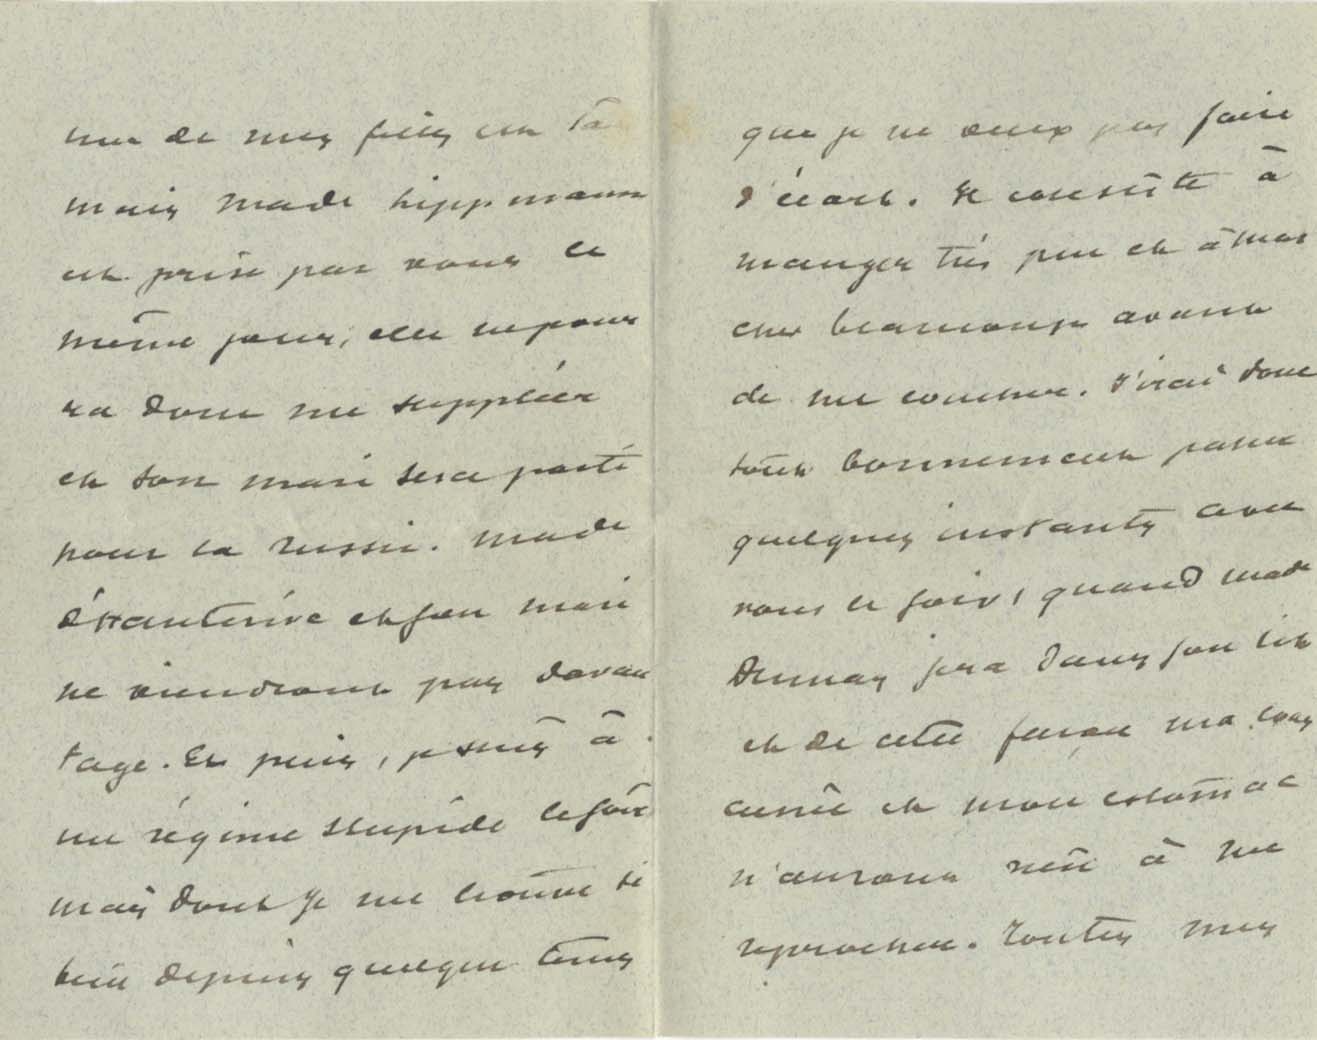 une de mes filles est là
mais Made Lippmann
est prise par vous le
même jour, elle ne pour
ra donc me suppléer
et son mari sera parti
pour la russie. Made
et son mari
ne viendront pas davan
tage. Et puis, je suis à
un régime stupide le soir
mais dont je me trouve si
bien depuis quelque tems
que je ne veux pas faire
d'écart. Il consiste à
manger très peu et à mar
cher beaucoup avant
de me coucher. J'irai donc
tout bonnement passer
quelques instants avec
vous le soir, quand Made
Aubernon sera dans son lit
et de cette façon ma cons
cience et mon estomac
n'auront rien à me
reprocher. Toutes mes